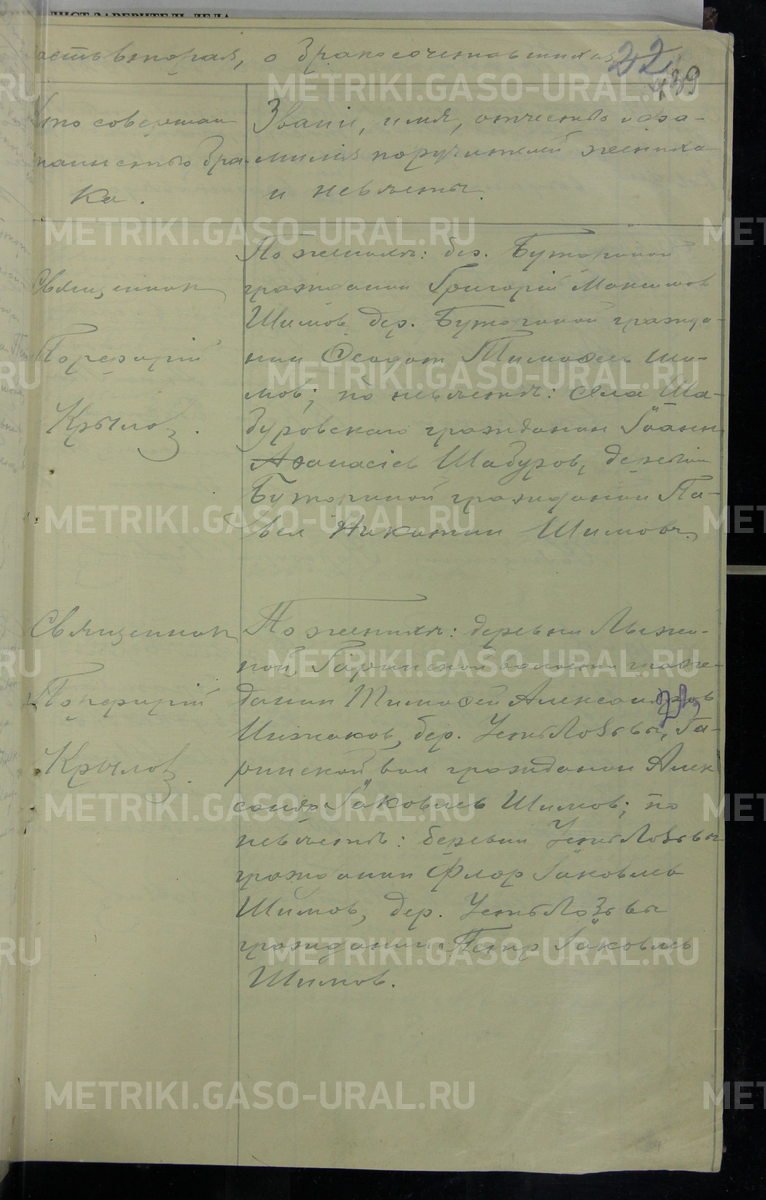 ЛИСТ-ЗАВЕРИТЕЛЬ ДЕЛА
асть вторая, о бракосочетавшихся
22
439
Кто совершал
таинство бра-
ка.
Званіе, имя, отчество и фа-
милія поручителей жениха
и невѣсты.
Священник
Порфирій
Крылов.
По женихѣ: дер. Буториной
гражданин Григорій Максимов
Шимов, дер. Буториной гражда-
нин Феодот Тимофеев Ши-
мов; по невѣстѣ: села Ша-
буровскаго гражданин Іоанн
Афанасіев Шабуров, деревни
Буториной гражданин Па-
вел Никитин Шимов.
Священник
Порфирій
Крылов.
По женихѣ: деревни
Гаринской волости граж-
данин Тимофей Александров
дер. Усть Лозьвы, Га-
ринской вол гражданин Алек
сандр Іаковлев Шимов; по
невѣстѣ: деревни Усть Лозьвы
гражданин Флор Іаковлев
Шимов, дер. Усть Лозьвы
гражданин Петр Іаковлев
Шимов.
METRIKI.GASO-URAL.RU